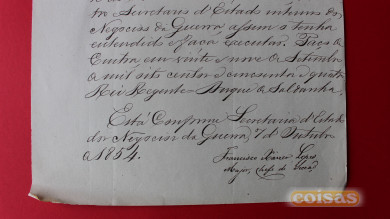 tro Secretario d'Estado interino dos
Negocios da Guerra assim o tenha
entendido e faça executar. Paço de
Cintra em vinte e nove de Setembro
de mil oito centos e cincoenta e quatro
Rei Regente = Duque de Saldanha.
Está Conforme Secretaria d'Estado
dos Negocios da Guerra, 7 d'Outubro
de 1854.
Francisco Xavier Lopes
Major, Chefe de Secção
coisas